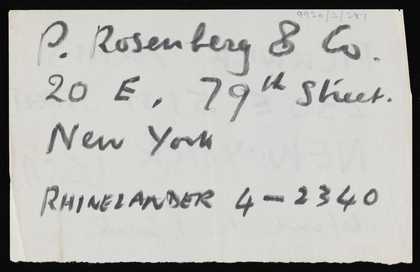 9920/2/281
P. Rosenberg & Co.
20 E, 79th Street.
New York
RHINELANDER 4-2340